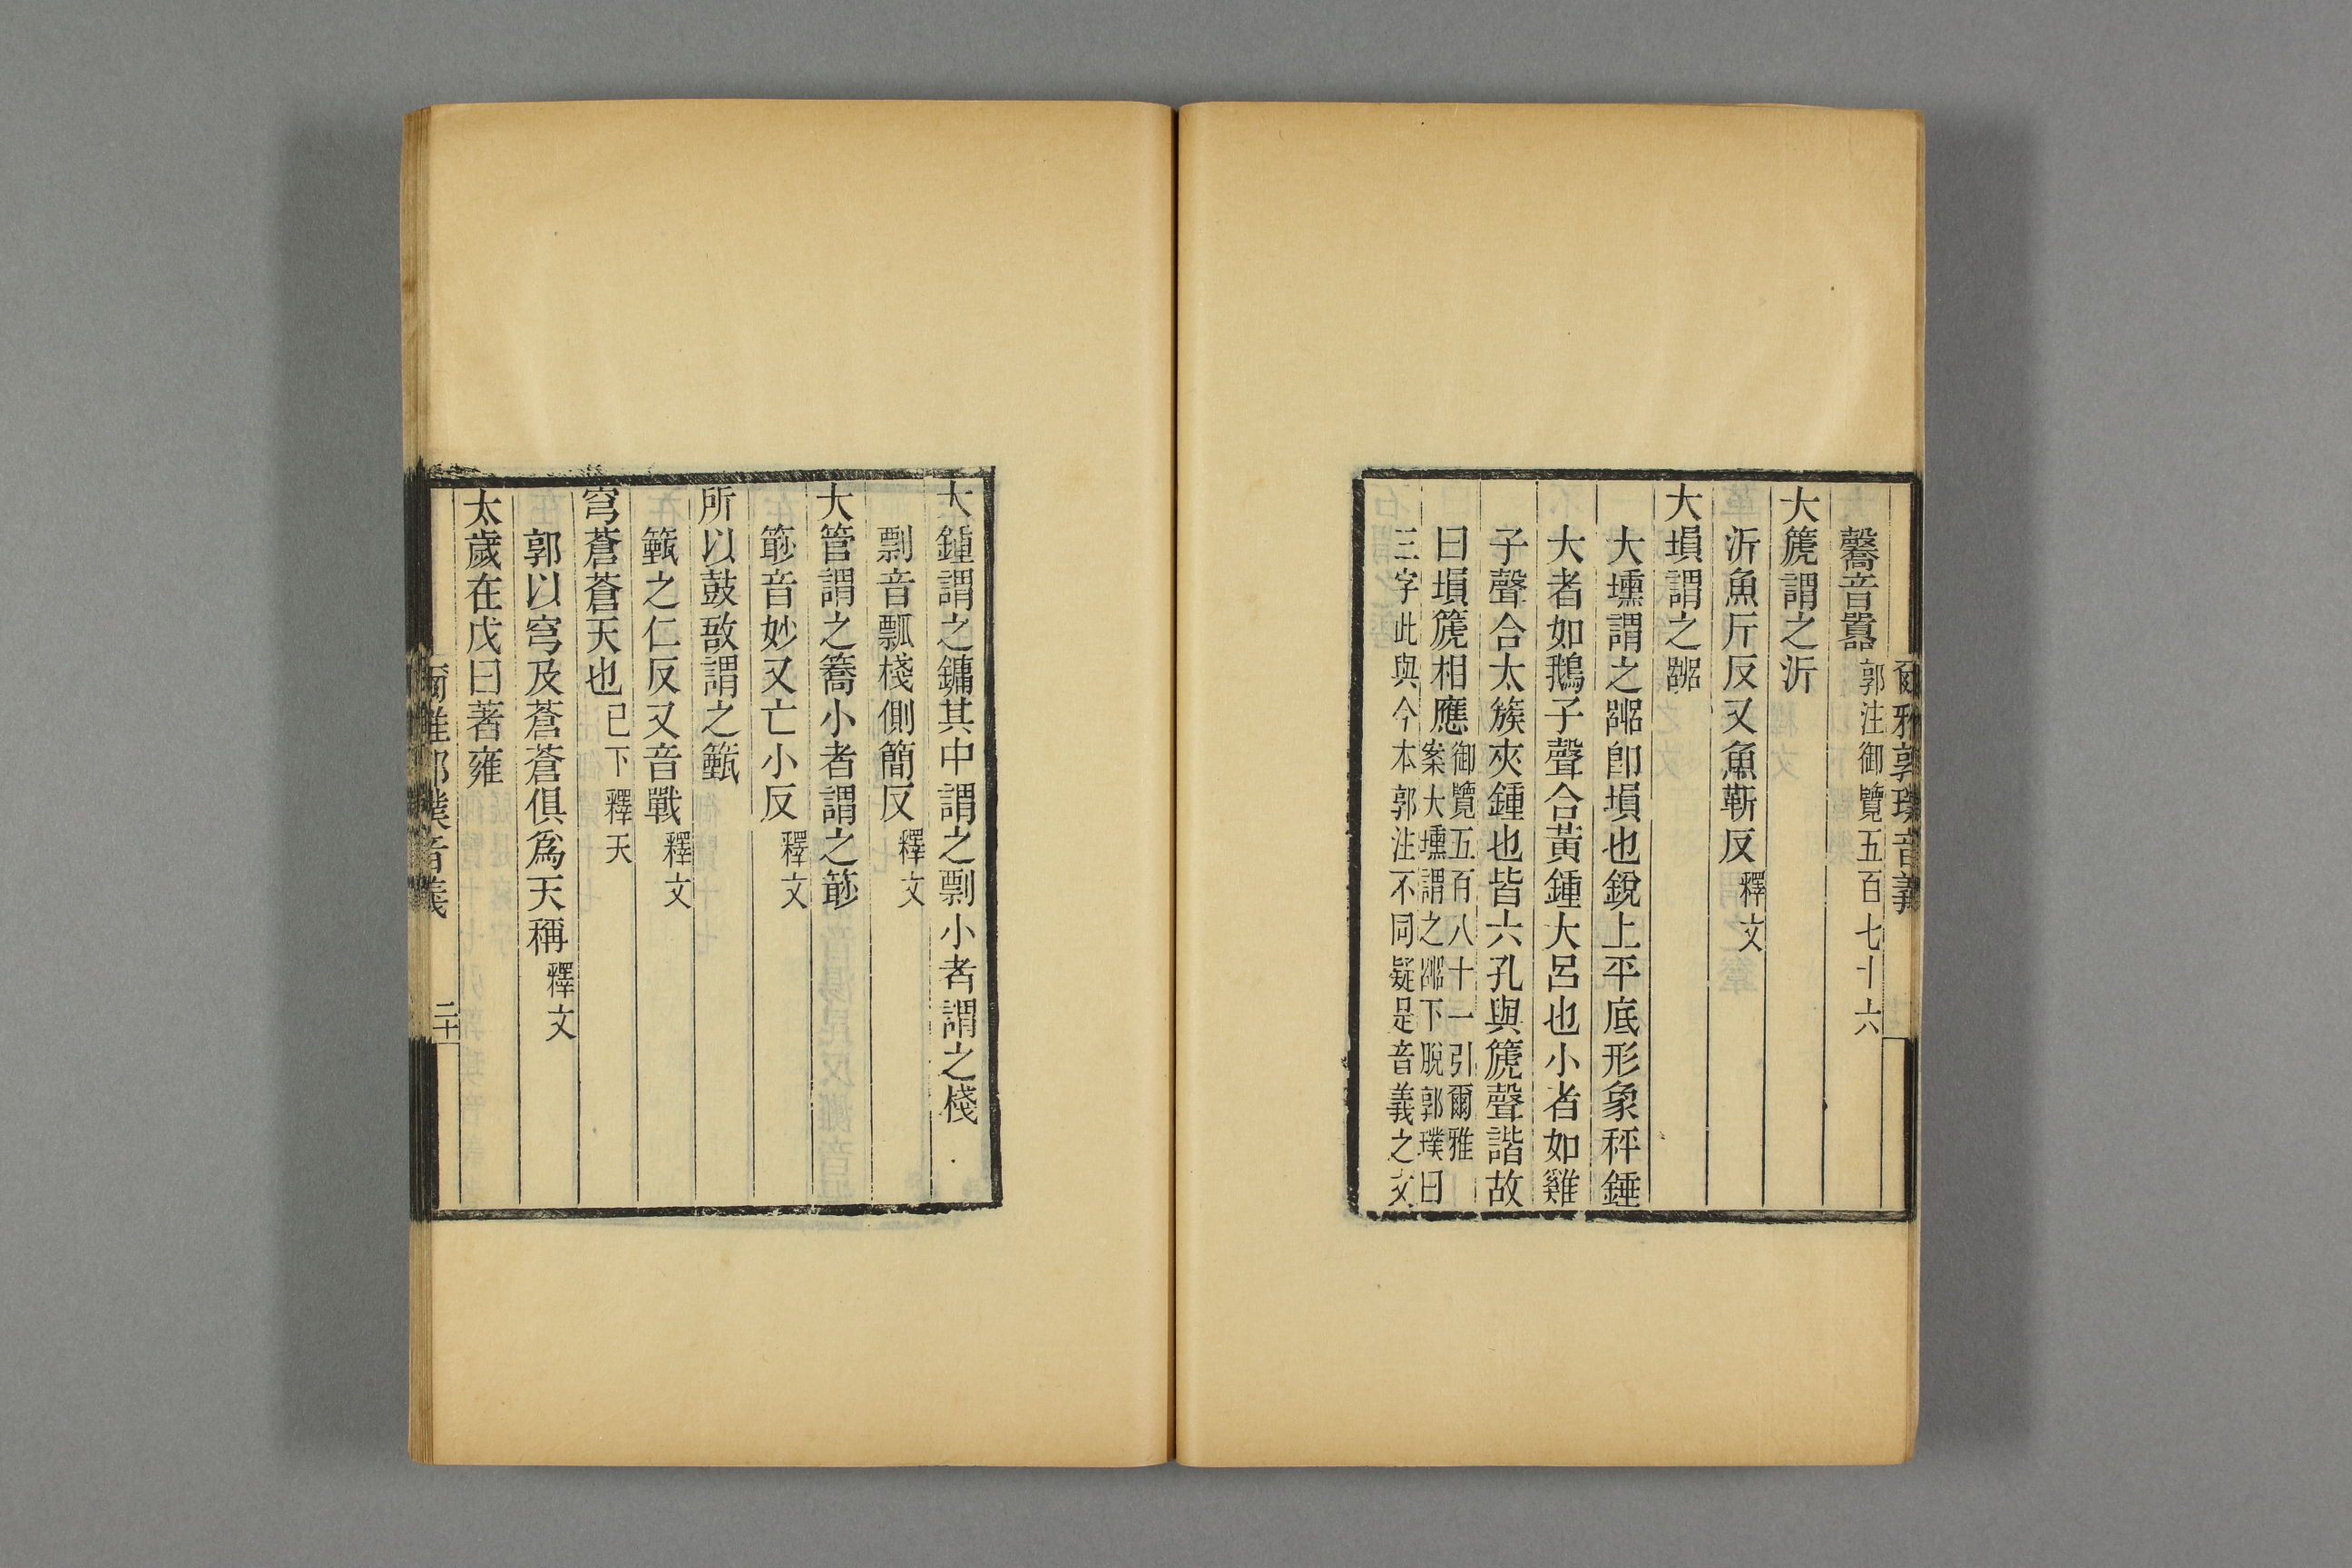 爾雅郭璞音義
毊音囂郭注御覽五百七十六
大箎謂之沂
沂魚斤反又魚靳反釋文
大塤謂之㗊
大壎謂之㗊卽塤也銳上平底形象秤錘
大者如鵝子聲合黃鍾大呂也小者如雞
子聲合太簇夾鍾也皆六孔與箎聲諧故
曰塤箎相應御覽五百八十一引爾雅
案大壎謂之㗊下脫郭璞曰
三字此與今本郭注不同疑是音義之文
大鍾謂之鏞其中謂之剽小者謂之棧
剽音瓢棧側簡反釋文
大管謂之簥小者謂之篎
篎音妙又亡小反釋文
所以鼓敔謂之籈
籈之仁反又音戰釋文
穹蒼蒼天也已下釋天
郭以穹及蒼蒼俱爲天稱釋文
太歲在戊曰著雍
爾雅郭璞音義
二十